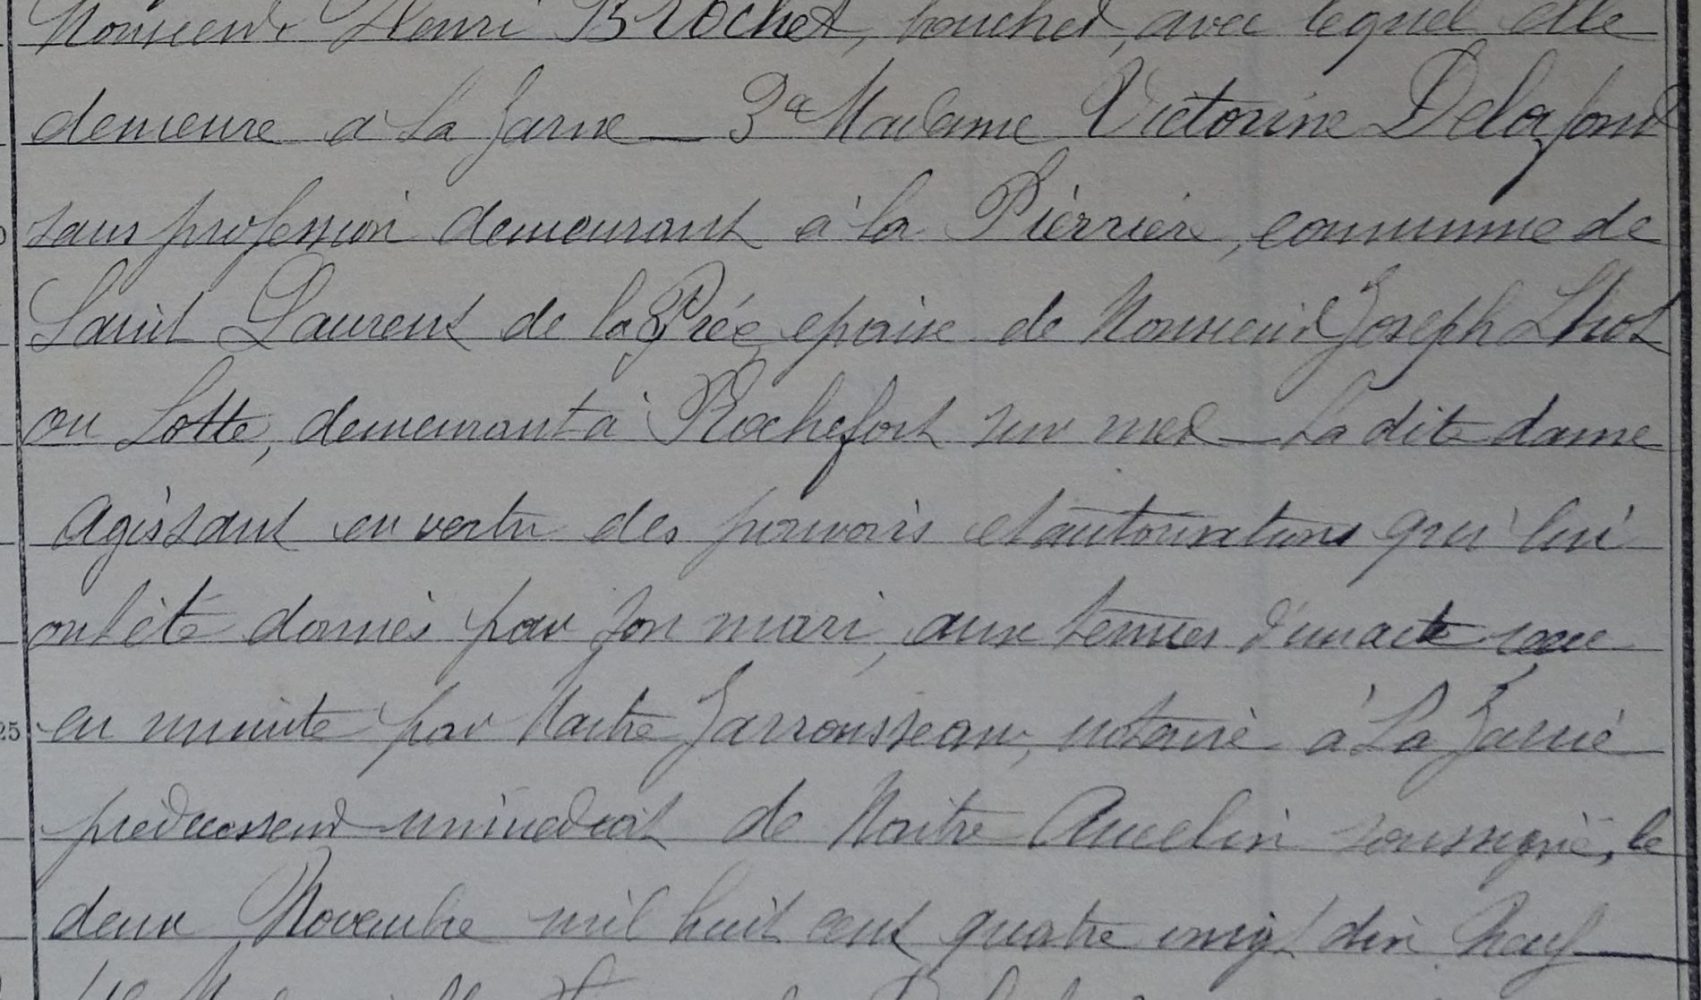 Monsieur Henri Brochet, boucher, avec lequel elle
demeure a La Jarne — 3a Madame Victorine Delafond
sans profession demeurant à la Pierrière, commune de
Saint Laurent de la Prée, epouse de Monsieur Joseph Lhot
ou Lotte, demeurant à Rochefort sur mer — La dite dame
agissant en vertu des pouvoirs et autorisations qui lui
ont été donnés par son mari, aux termes d'un acte reçu
25 en minute par Maitre Jarrousseau, notaire à La Jarrie
prédécesseur immédiat de Maitre Amelin soussigné, le
deux Novembre mil huit cent quatre vingt dix neuf —